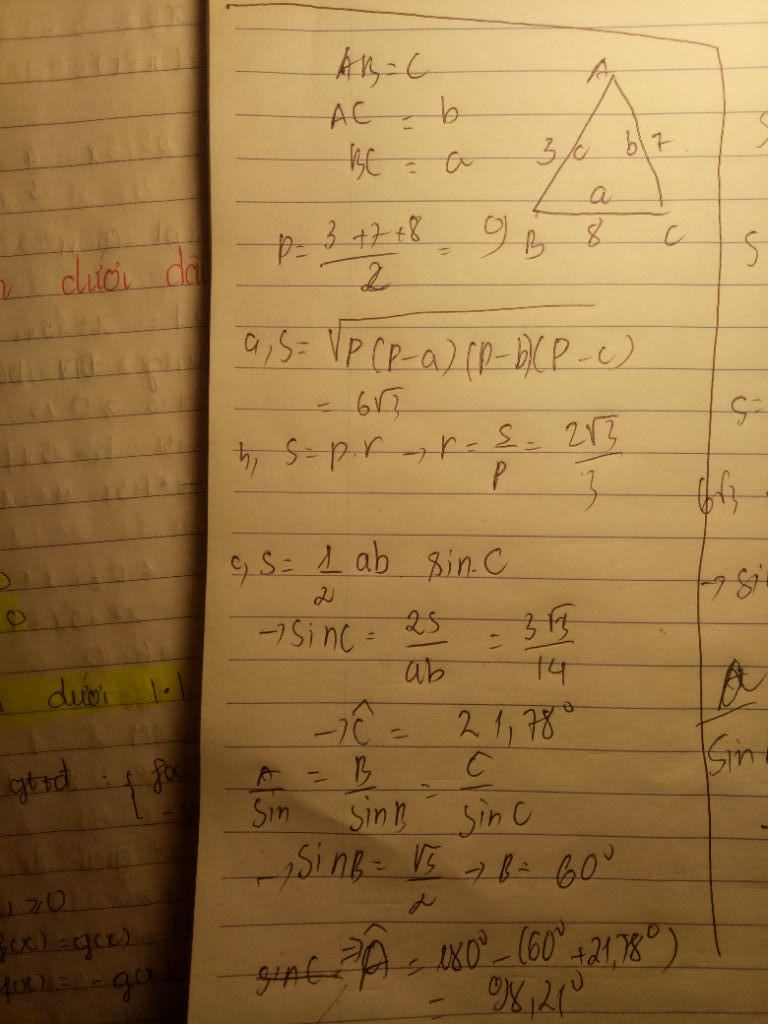 AB = C
AC = b
BC = a
A
3 c b 7
a
B 8 C
P = \frac{3+7+8}{2} = 9
a, S = \sqrt{P(P-a)(P-b)(P-c)}
= 6\sqrt{3}
b, S = p.r → r = \frac{S}{P} = \frac{2\sqrt{3}}{3}
c, S = \frac{1}{2} ab sin.C
→ sinC = \frac{2S}{ab} = \frac{3\sqrt{3}}{14}
→ Ĉ = 21,78°
\frac{A}{Sin} = \frac{B}{sinB} = \frac{C}{sinC}
→ SinB = \frac{\sqrt{3}}{2} → B = 60°
sinC ⇒ Â = 180° - (60° + 21,78°)
= 98,21°
dưới
dưới 1.1
gttđ : { f(x
≥0
f(x) = g(x)
f(x) = - g(x)
S
S=
6√3
→ sin
a
Sin